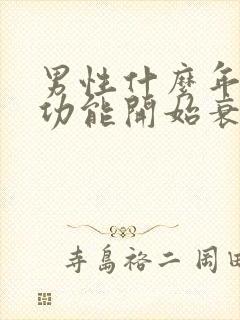 男性什麼年
功能開始衰
寺島裕二 岡田